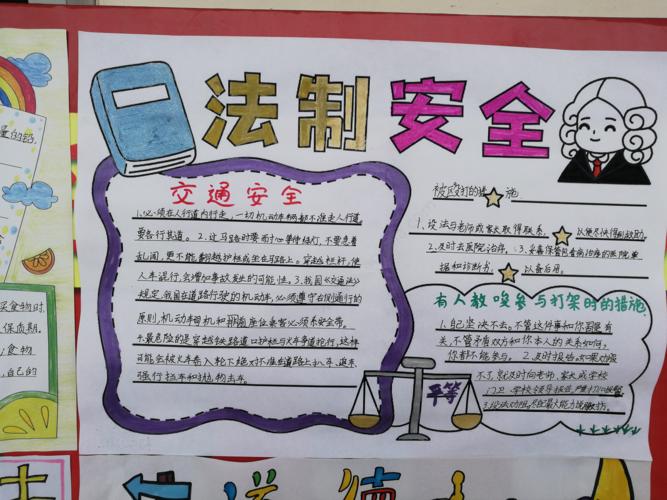 法制安全
交通安全
1.必须在人行道内行走,一切机动车辆都不准走人行道,
要各行其道。2.过马路时要耐心等待绿灯,不要急着
乱闯,更不能翻越护栏或坐在马路上。穿越栏杆,使
人车混行,会增加事故发生的可能性。3.我国《交通法》
规定,我国在道路行驶的机动车,必须遵守右侧通行的
原则,机动车司机和前面座位乘客必须系安全带。
4.最危险的是穿越铁路道口护栏与火车争道抢行,这样
可能会被火车卷入轮下绝对不准在道路上扒车、追车
强行拦车和抛物击车。
被殴打的措施
1、设法与老师或家长取得联系,以便尽快得到救助。
2.及时去医院治疗。3.妥善保管包查病治疗的医院重
据和诊断书,以备后用。
有人教唆参与打架时的措施.
1.自己坚决不去。不管这件事和你到底有
关,不管矛盾双方和你本人的关系如何,
你都不能参与。2.及时报告:如果劝诫
不了,就及时向老师、家长或学校
门卫、学校领导报告,
平等
量的钙.
买食物时
保质期.
食物
自己的
道德